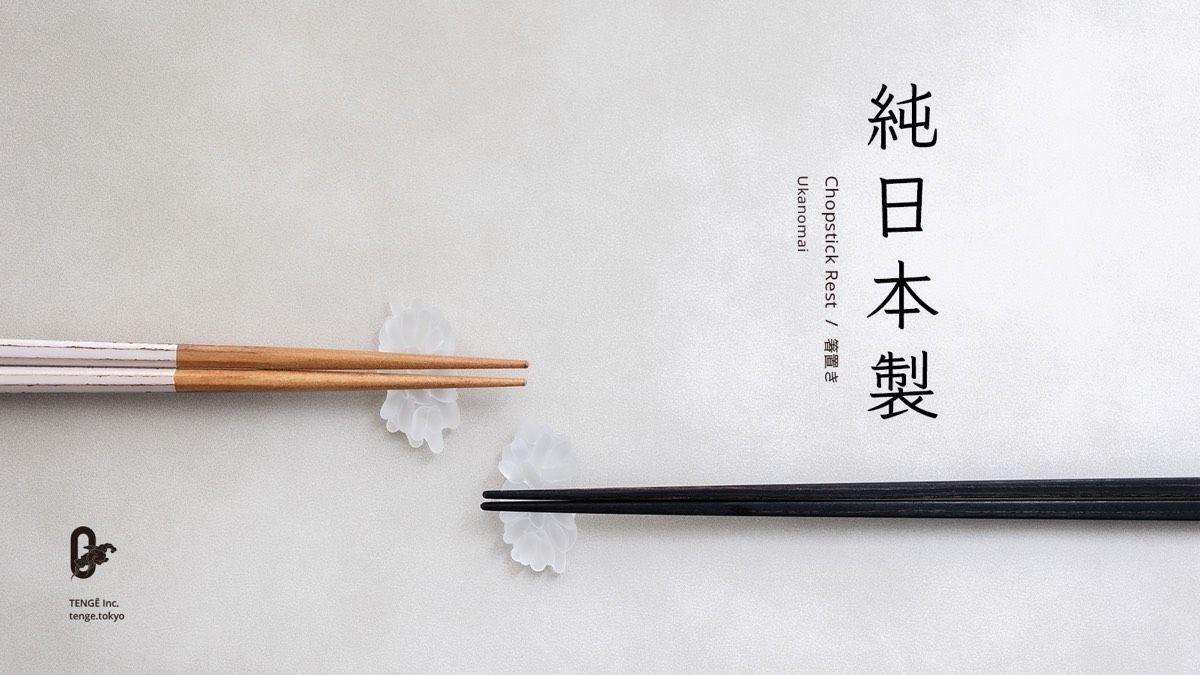 純日本製
Chopstick Rest / 箸置き
Ukanomai
TENGĒ Inc.
tenge.tokyo